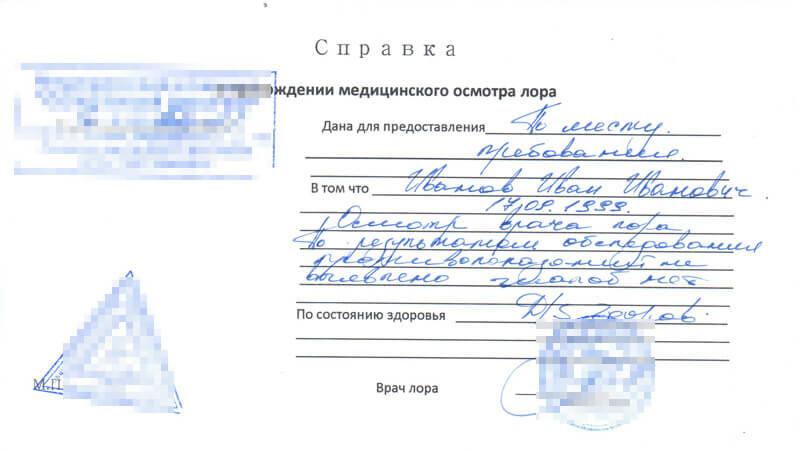 Справка
ождении медицинского осмотра лора
Дана для предоставления По месту
требования.
В том что Иванов Иван Иванович
17.09.1999.
Осмотр врача лора
По результатам обследования
противопоказаний не
выявлено жалоб нет
По состоянию здоровья D/S здоров.
М.П
Врач лора